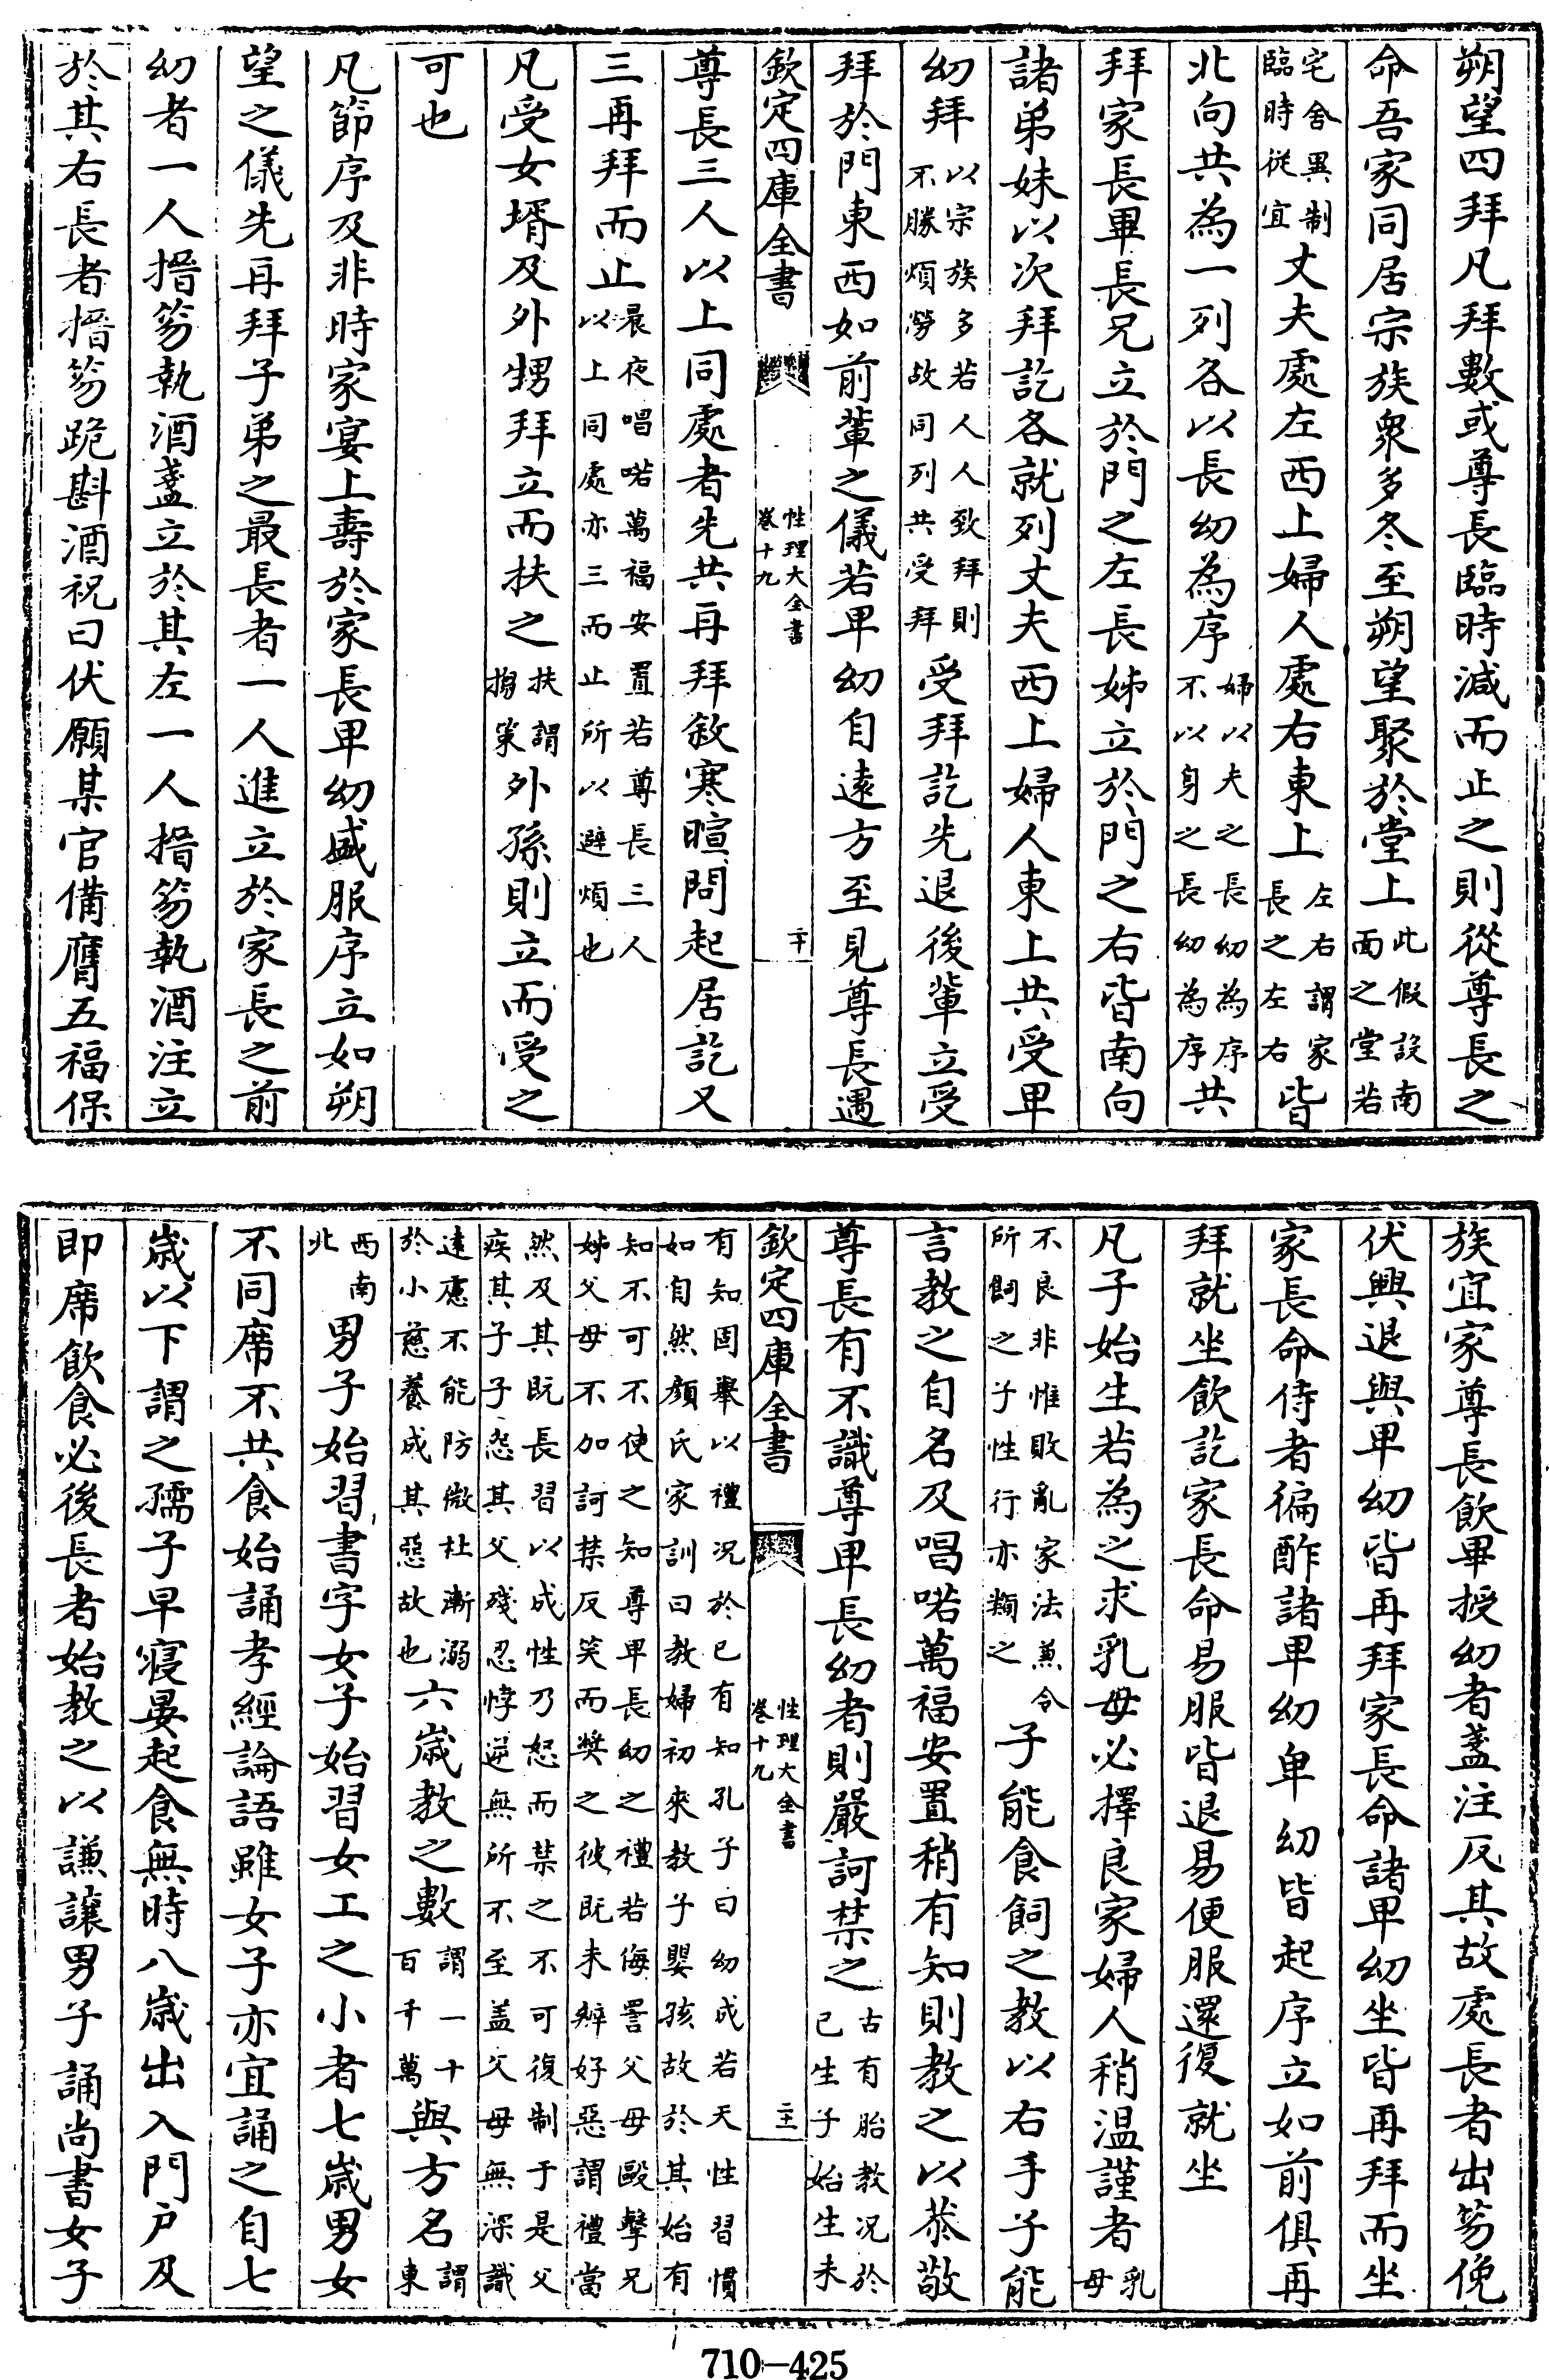 朔望四拜凡拜數或尊長臨時減而止之則從尊長之
命吾家同居宗族衆多冬至朔望聚於堂上此假設南面之堂若
宅舍異制臨時從宜丈夫處左西上婦人處右東上左右謂家長之左右皆
北向共為一列各以長幼為序婦以夫之長幼為序不以身之長幼為序共
拜家長畢長兄立於門之左長姊立於門之右皆南向
諸弟妹以次拜訖各就列丈夫西上婦人東上共受卑
幼拜以宗族多若人人致拜則不勝煩勞故同列共受拜受拜訖先退後輩立受
拜於門東西如前輩之儀若卑幼自遠方至見尊長遇
欽定四庫全書 性理大全書卷十九 二十
尊長三人以上同處者先共再拜敘寒暄問起居訖又
三再拜而止晨夜唱喏萬福安置若尊長三人以上同處亦三而止所以避煩也
凡受女壻及外甥拜立而扶之扶謂搊策外孫則立而受之
可也
凡節序及非時家宴上壽於家長卑幼盛服序立如朔
望之儀先再拜子弟之最長者一人進立於家長之前
幼者一人搢笏執酒盞立於其左一人搢笏執酒注立
於其右長者搢笏跪斟酒祝曰伏願某官備膺五福保
族宜家尊長飲畢授幼者盞注反其故處長者出笏俛
伏興退與卑幼皆再拜家長命諸卑幼坐皆再拜而坐
家長命侍者徧酢諸卑幼卑幼皆起序立如前俱再
拜就坐飲訖家長命易服皆退易便服還復就坐
凡子始生若為之求乳母必擇良家婦人稍温謹者乳母
不良非惟敗亂家法兼令所飼之子性行亦類之子能食飼之教以右手子能
言教之自名及唱喏萬福安置稍有知則教之以恭敬
尊長有不識尊卑長幼者則嚴訶禁之古有胎教况於已生子始生未
欽定四庫全書 性理大全書卷十九 二十一
有知固舉以禮况於已有知孔子曰幼成若天性習慣如自然顔氏家訓曰教婦初來教子嬰孩故於其始有
知不可不使之知尊卑長幼之禮若侮詈父母毆擊兄姊父母不加訶禁反笑而奬之彼既未辨好惡謂禮當
然及其既長習以成性乃怒而禁之不可復制于是父疾其子子怨其父殘忍悖逆無所不至盖父母無深識
遠慮不能防微杜漸溺於小慈養成其惡故也六歲教之數謂一十百千萬與方名謂東
西南北男子始習書字女子始習女工之小者七歲男女
不同席不共食始誦孝經論語雖女子亦宜誦之自七
歲以下謂之孺子早寢晏起食無時八歲出入門户及
即席飲食必後長者始教之以謙讓男子誦尚書女子
710-425